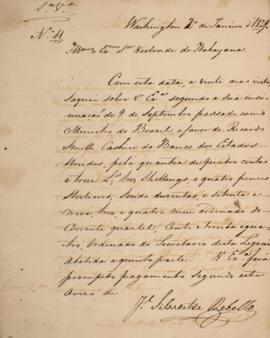 Pagª
Washington 2 de Janeiro de 1829.
Nº 11
Illmº Exmº Snr Visconde de Itabayana
Com esta data, a vinte dias vista
saquei sobre Vª Exª segundo a sua
de 9 de Septembro passado como
Ministro do Brasil, a favor de Ricardo
Smith Cashier do Banco dos Estados
Unidos, pela quantia de quatro centas
e treze Lˢ tres Shellings e quatro pences
Sterlinos, sendo duzentas e setenta e
nove, tres e quatro meu ordenado do
Corrente quartel: Cento e trinta e qua
tro, Ordenado do Secretario desta Legação
Abatida a quinta parte. Vª Exª fará
prompto pagamento segundo este
Aviso de
Jé Silvestre Rebello